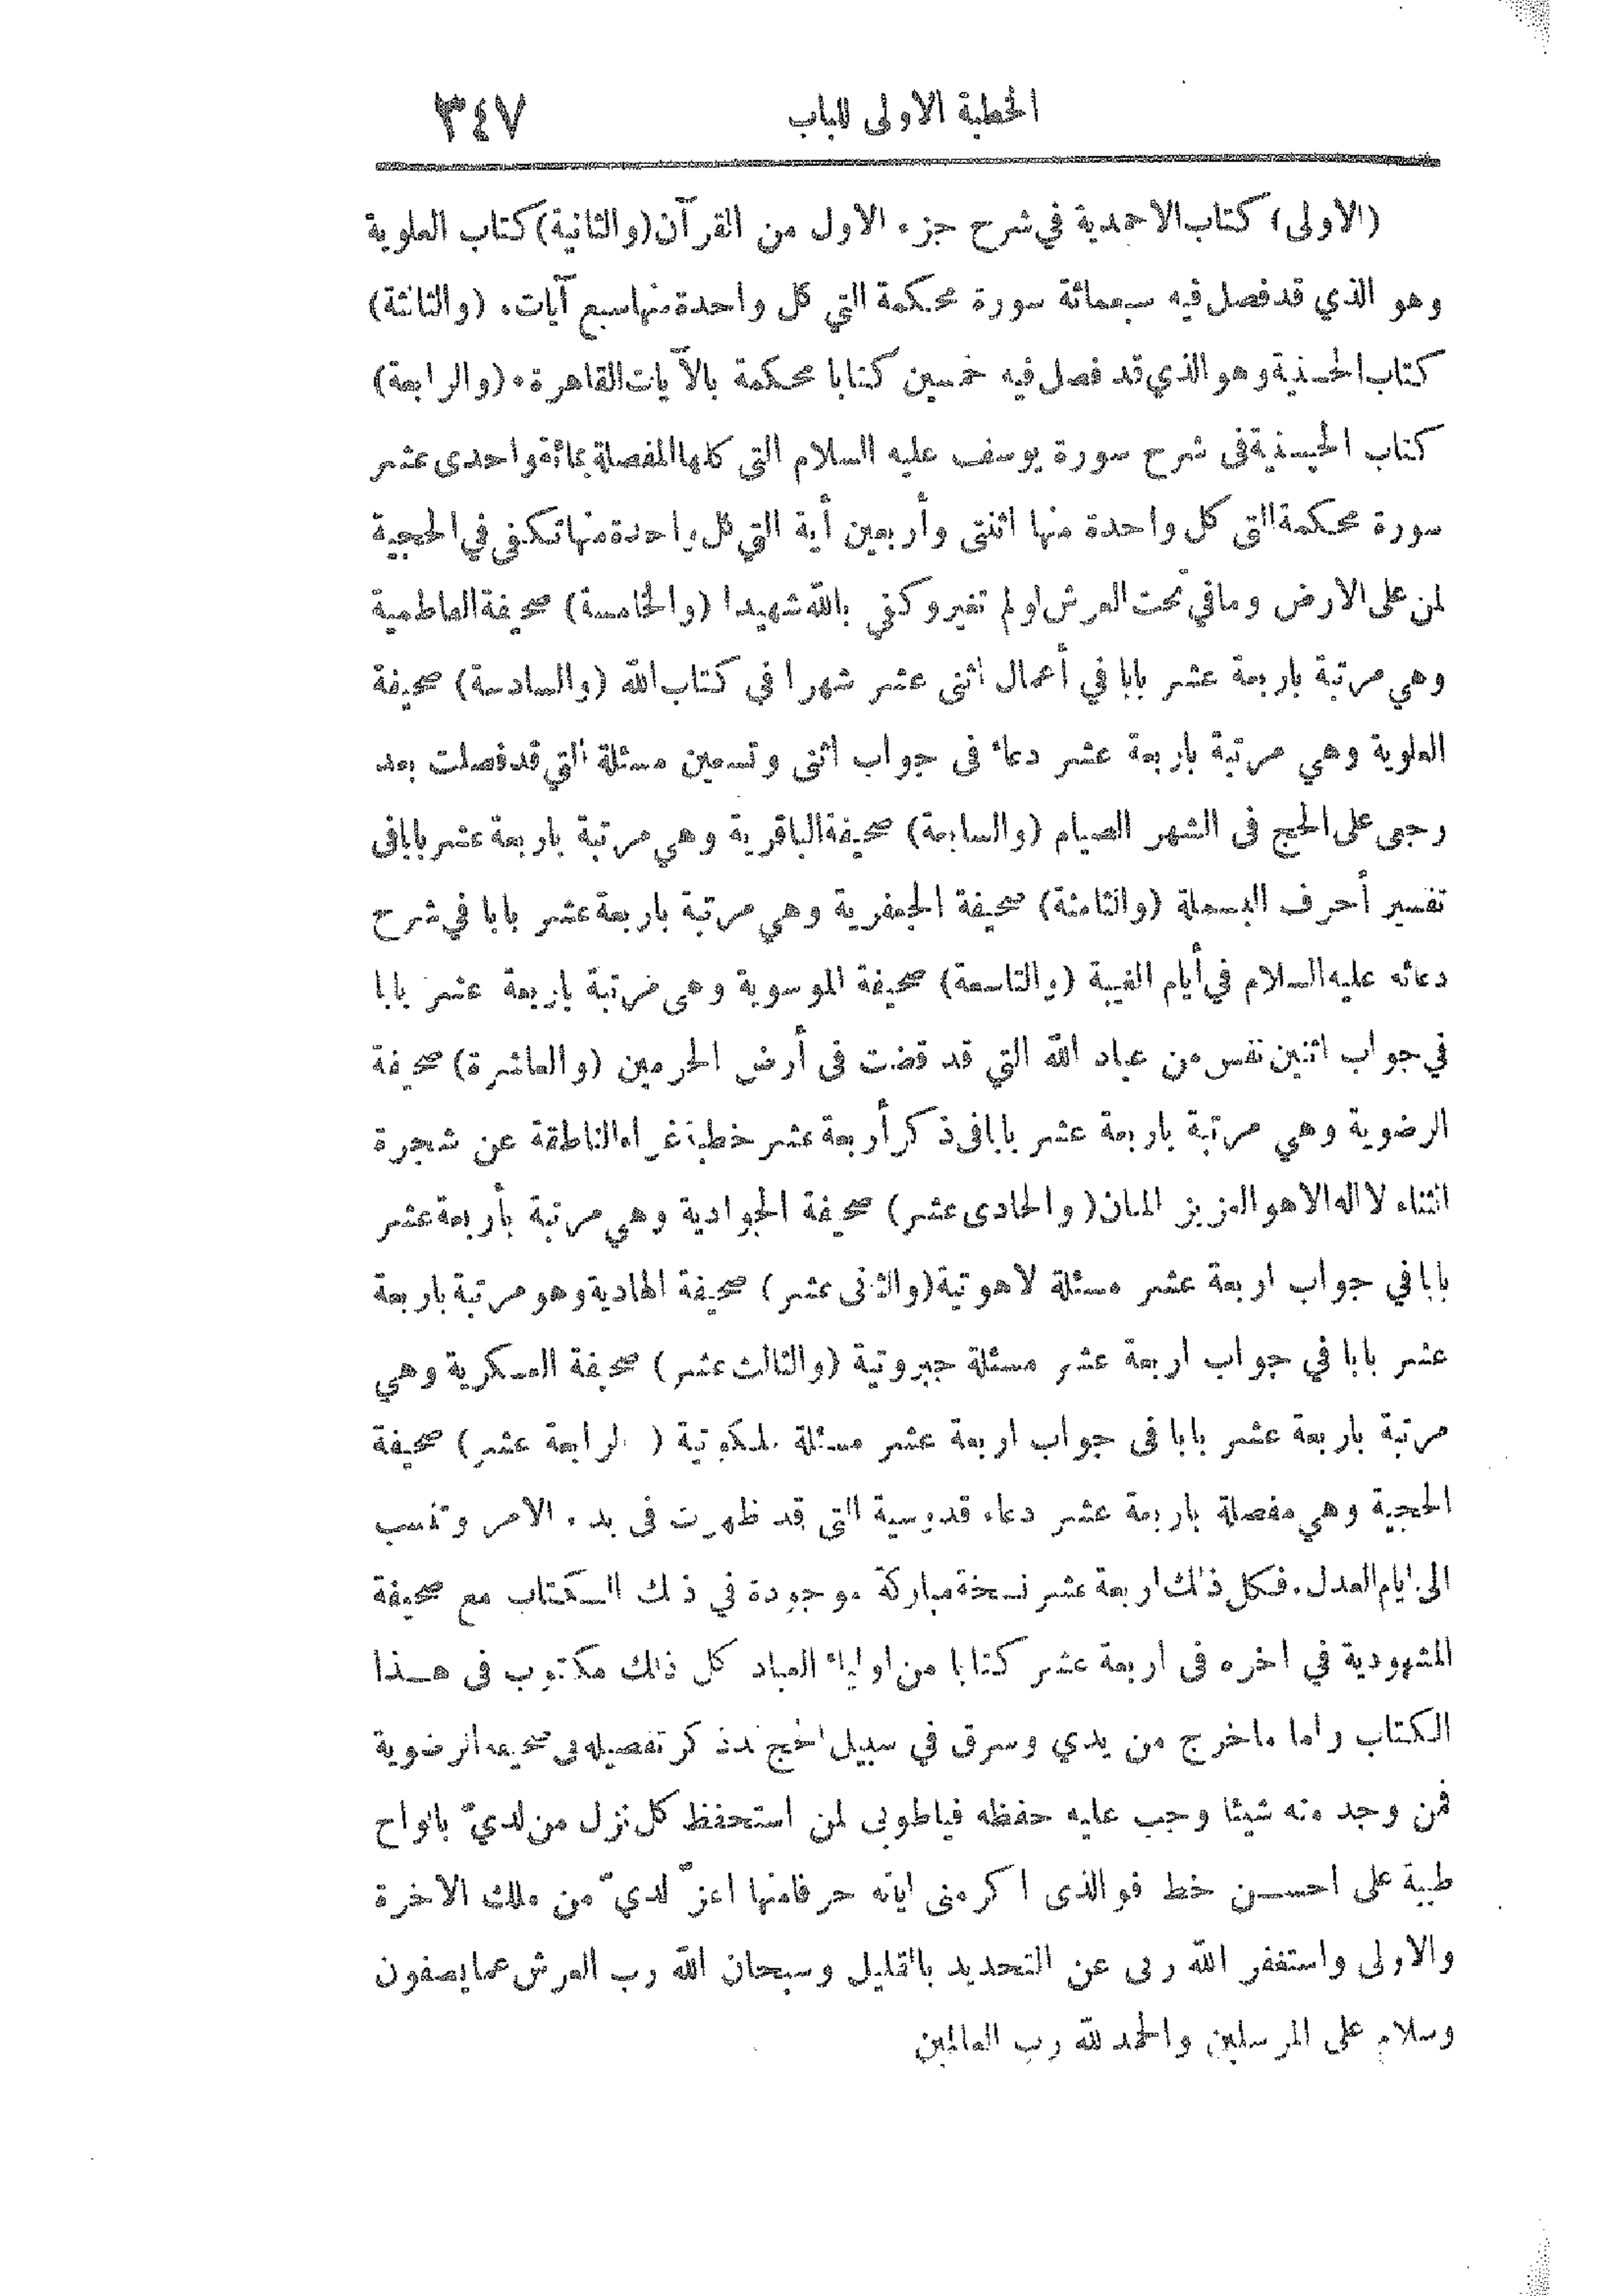 الخطبة الاولى للباب ٣٤٧
(الاولى) كتاب الاحمدية في شرح جزء الاول من القرآن (والثانية) كتاب العلوية
وهو الذي قد فصل فيه سبعمائة سورة محكمة التي كل واحدة منها سبع آيات. (والثالثة)
كتاب الحسنية وهو الذي قد فصل فيه خمسين كتابا محكمة بالآيات القاهرة. (والرابعة)
كتاب الحسينية فى شرح سورة يوسف عليه السلام التى كلها المفصلة بمائة واحدى عشر
سورة محكمة التى كل واحدة منها اثنتى وأربعين أية التي كل واحدة منها تكفى في الحجية
لمن على الارض وما في تحت العرش او لم تغير وكفى بالله شهيدا (والخامسة) صحيفة الفاطمية
وهي مرتبة باربعة عشر بابا في أعمال اثنى عشر شهرا فى كتاب الله (والسادسة) صحيفة
العلوية وهي مرتبة باربعة عشر دعاء فى جواب اثنى وتسعين مسئلة التي قد فصلت بعد
رجعى على الحج فى الشهر الصيام (والسابعة) صحيفة الباقرية وهي مرتبة باربعة عشر بابا فى
تفسير أحرف البسملة (والثامنة) صحيفة الجعفرية وهي مرتبة باربعة عشر بابا في شرح
دعائه عليه السلام في أيام الغيبة (والتاسعة) صحيفة الموسوية وهى مرتبة باربعة عشر بابا
في جواب اثنين نفس من عباد الله التي قد قضت فى أرض الحرمين (والعاشرة) صحيفة
الرضوية وهي مرتبة باربعة عشر بابا فى ذكر أربعة عشر خطبة غراء الناطقة عن شجرة
الثناء لا اله الا هو العزيز المنان (والحادى عشر) صحيفة الجوادية وهي مرتبة بأربعة عشر
بابا في جواب اربعة عشر مسئلة لاهوتية (والثانى عشر) صحيفة الهادية وهو مرتبة باربعة
عشر بابا في جواب اربعة عشر مسئلة جبروتية (والثالث عشر) صحيفة العسكرية وهي
مرتبة باربعة عشر بابا فى جواب اربعة عشر مسئلة ملكوتية (الرابعة عشر) صحيفة
الحجية وهي مفصلة باربعة عشر دعاء قدوسية التى قد ظهرت فى بدء الامر وتنسب
الى ايام العدل. فكل ذلك اربعة عشر نسخة مباركة موجودة في ذلك الكتاب مع صحيفة
المشهودية في اخره فى اربعة عشر كتابا من اولياء العباد كل ذلك مكتوب فى هذا
الكتاب واما ما خرج من يدي وسرق في سبيل الحج قد ذكر تفصيله فى صحيفة الرضوية
فمن وجد منه شيئا وجب عليه حفظه فياطوبى لمن استحفظ كل نزل من لديّ بالواح
طيبة على احسن خط فو الذى اكرمنى اياته حرفا منها اعزّ لديّ من ملك الاخرة
والاولى واستغفر الله ربى عن التحديد بالقليل وسبحان الله رب العرش عما يصفون
وسلام على المرسلين والحمد لله رب العالمين